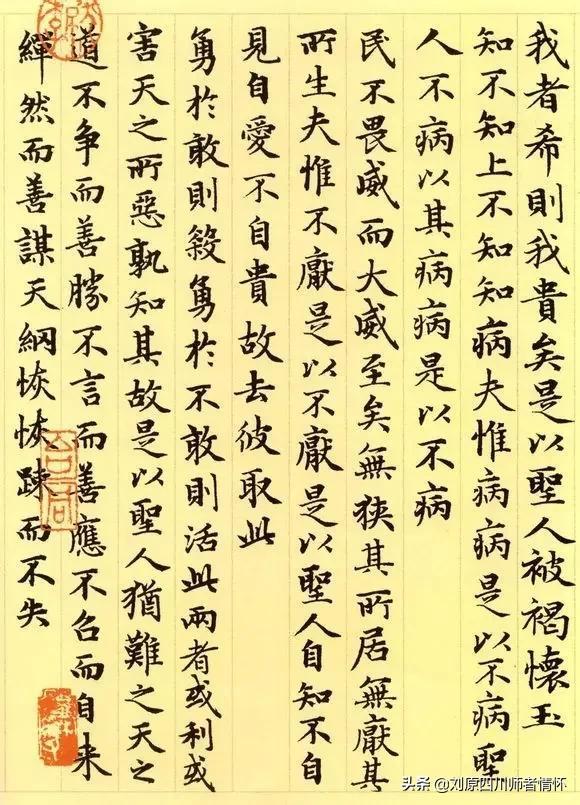 我者希則我貴矣是以聖人被褐懷玉
知不知上不知知病夫惟病病是以不病聖
人不病以其病病是以不病
民不畏威而大威至矣無狹其所居無厭其
所生夫惟不厭是以不厭是以聖人自知不自
見自愛不自貴故去彼取此
勇於敢則殺勇於不敢則活此兩者或利或
害天之所惡孰知其故是以聖人猶難之天之
道不爭而善勝不言而善應不召而自来
繟然而善謀天網恢恢踈而不失
头条 @刘原四川师者情怀